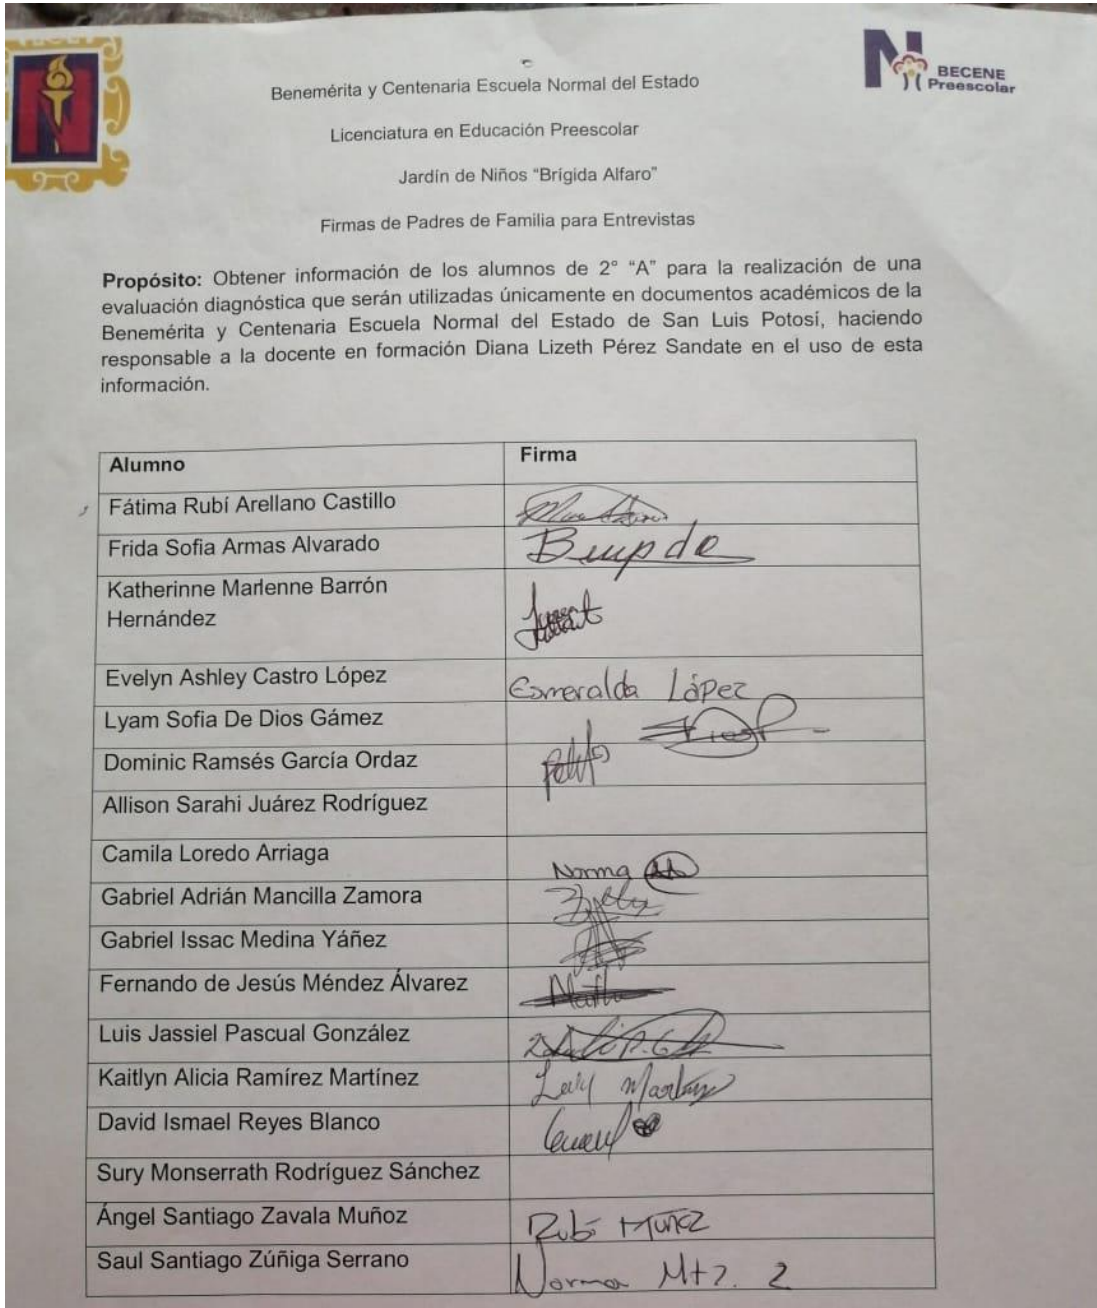 BECENE
Preescolar
Benemérita y Centenaria Escuela Normal del Estado
Licenciatura en Educación Preescolar
Jardín de Niños “Brígida Alfaro”
Firmas de Padres de Familia para Entrevistas
Propósito: Obtener información de los alumnos de 2° “A” para la realización de una
evaluación diagnóstica que serán utilizadas únicamente en documentos académicos de la
Benemérita y Centenaria Escuela Normal del Estado de San Luis Potosí, haciendo
responsable a la docente en formación Diana Lizeth Pérez Sandate en el uso de esta
información.
Alumno Firma
Fátima Rubí Arellano Castillo
Frida Sofia Armas Alvarado
Katherinne Marlenne Barrón
Hernández
Evelyn Ashley Castro López Esmeralda López
Lyam Sofia De Dios Gámez
Dominic Ramsés García Ordaz
Allison Sarahi Juárez Rodríguez
Camila Loredo Arriaga Norma
Gabriel Adrián Mancilla Zamora
Gabriel Issac Medina Yáñez
Fernando de Jesús Méndez Álvarez
Luis Jassiel Pascual González
Kaitlyn Alicia Ramírez Martínez
David Ismael Reyes Blanco
Sury Monserrath Rodríguez Sánchez
Ángel Santiago Zavala Muñoz Rubí Muñoz
Saul Santiago Zúñiga Serrano Norma Mtz. 2